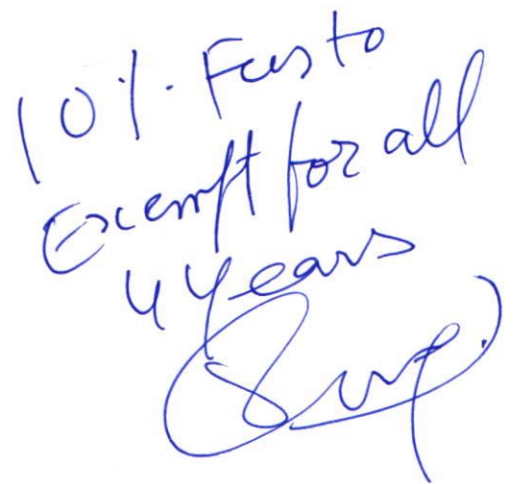 10%. Fees to
Exempt for all
4 years